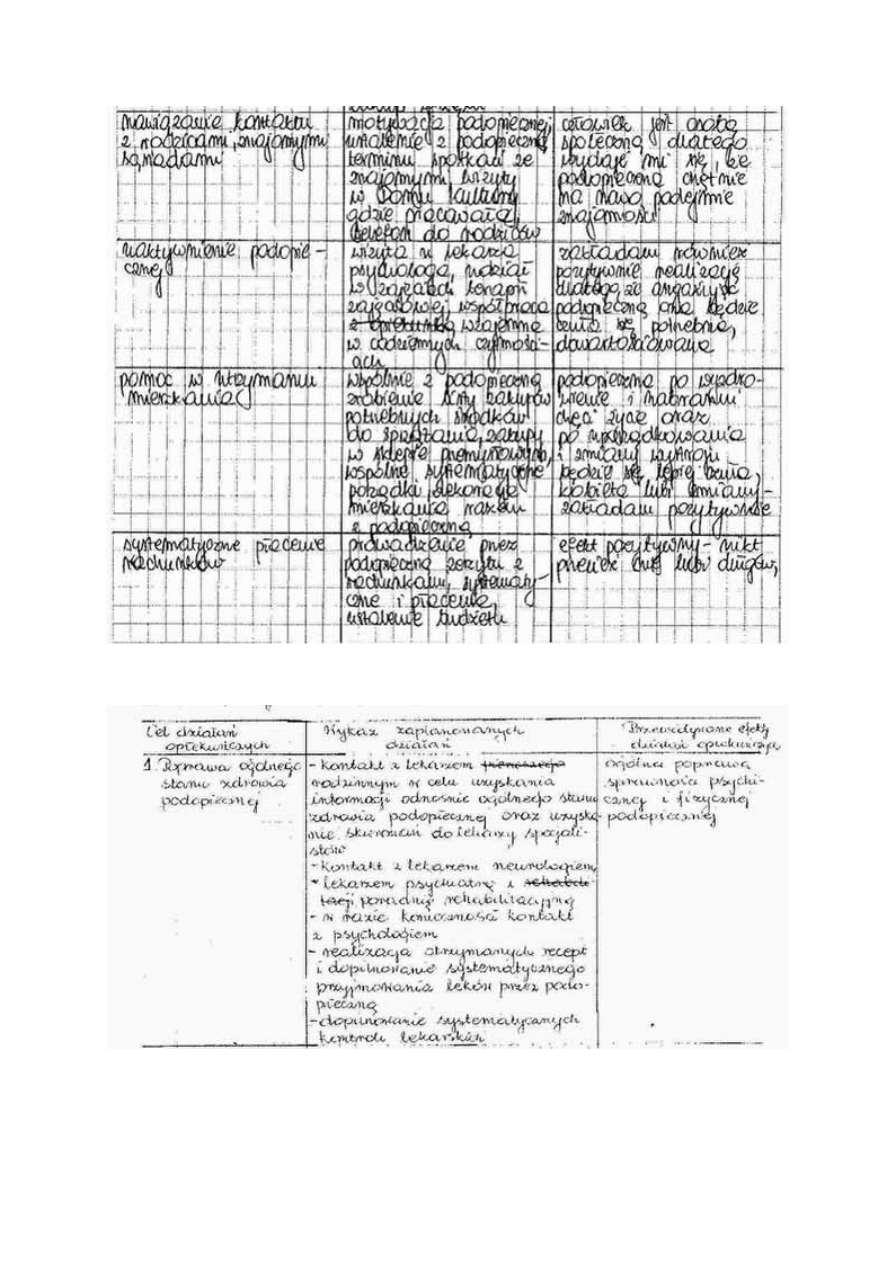 nawiązanie kontaktu
z rodzicami, znajomymi
sąsiadami
motywacja podopiecznej,
ustalenie z podopieczną
terminu spotkań ze
znajomymi, wizyty
w Domu Kultury
gdzie pracowała,
telefon do rodziców
człowiek jest osobą
społeczną dlatego
wydaje mi się, że
podopieczna chętnie
na nowo podejmie
znajomości
uaktywnienie podopie-
cznej
wizyta u lekarza
psychologa, udział
w zajęciach terapii
zajęciowej, współpraca
z opiekunką wzajemna
w codziennych czynności-
ach
zakładam również
pozytywnie realizację
dlatego, że angażując
podopieczną ona będzie
czuła się potrzebna,
dowartościowana
pomoc w utrzymaniu
mieszkania
wspólnie z podopieczną
zrobienie listy zakupów
potrzebnych środków
do sprzątania, zakupy
w sklepie przemysłowym,
wspólne systematyczne
porządki, dekoracja
mieszkania razem
z podopieczną
podopieczna po wyzdro-
wieniu i nabraniu
chęci życia oraz
po uporządkowaniu
i zmiany wystroju
będzie się lepiej czuła,
kobieta lubi zmiany-
zakładam pozytywnie
systematyczne płacenie
rachunków
prowadzenie przez
podopieczną zeszytu z
rachunkami, systematy-
czne i płacenie,
ustalenie budżetu
efekt pozytywny- nikt
przecież nie lubi długów,
Cel działań
opiekuńczych
Wykaz zaplanowanych
działań
Przewidywane efekty
działań opiekuńczych
1. Poprawa ogólnego
stanu zdrowia
podopiecznej
- kontakt z lekarzem pierwszego
rodzinnym w celu uzyskania
informacji odnośnie ogólnego stanu
zdrowia podopiecznej oraz uzyska-
nie skierowań do lekarzy specjali-
stów
- kontakt z lekarzem neurologiem,
- lekarzem psychiatrą i
poradnią rehabilitacyjną
- w razie konieczności kontakt
z psychologiem
- realizacja otrzymanych recept
i dopilnowanie systematycznego
przyjmowania leków przez podo-
pieczną
- dopilnowanie systematycznych
kontroli lekarskich
ogólna poprawa
sprawności psychi-
cznej i fizycznej
podopiecznej